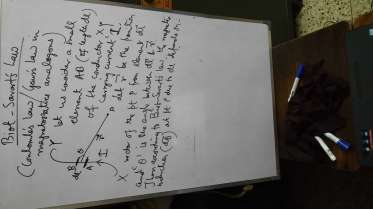 Biot - Savart's Law
(Coulomb's Law/Gauss Law in
magnetostatics analogous)
Let us consider a small
element AB (of length dl)
of the conductor XY
carrying current I.
Let r be the position
vector of the pt P from element dl
and 'θ' is the angle between dl & r
Then according to Biot-Savart's law, the magnetic
induction (dB) at pt P
Y
B
θ
dl
A
I
r
P
X